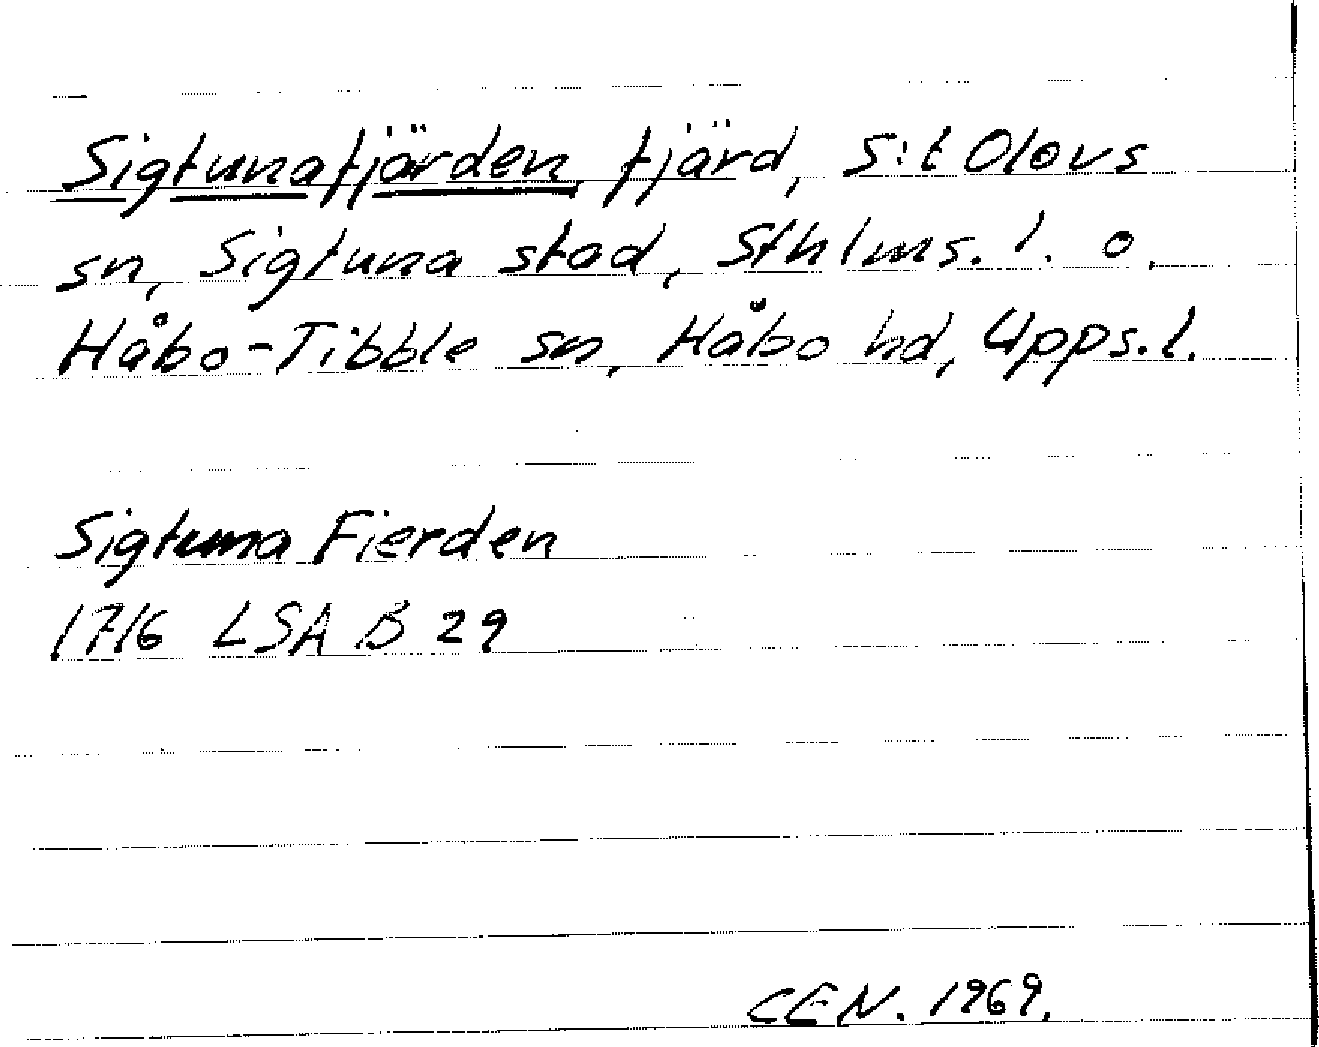 Sigtunafjärden, fjärd, S:t Olovs
sn, Sigtuna stad, Sthlms. l. o.
Håbo-Tibble sn, Håbo hd, Upps. l.
Sigtuna Fierden
1716 LSA B 29
CEN. 1969.